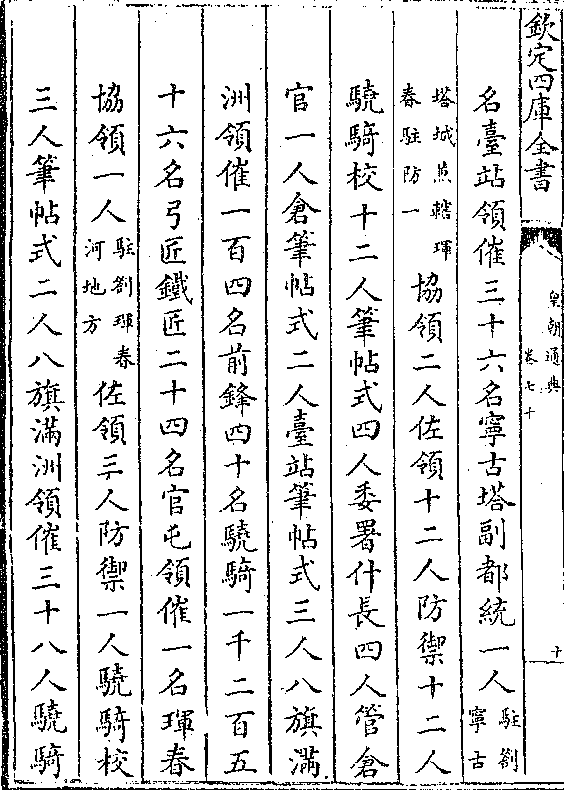 欽定四庫全書
皇朝通典
卷七十
十
名臺站領催三十六名寧古塔副都統一人駐劄寧古
塔城兼轄琿春駐防一協領二人佐領十二人防禦十二人
驍騎校十二人筆帖式四人委署什長四人管倉
官一人倉筆帖式二人臺站筆帖式三人八旗滿
洲領催一百四名前鋒四十名驍騎一千二百五
十六名弓匠鐵匠二十四名官屯領催一名琿春
協領一人駐劄琿春河地方佐領三人防禦一人驍騎校
三人筆帖式二人八旗滿洲領催三十八人驍騎